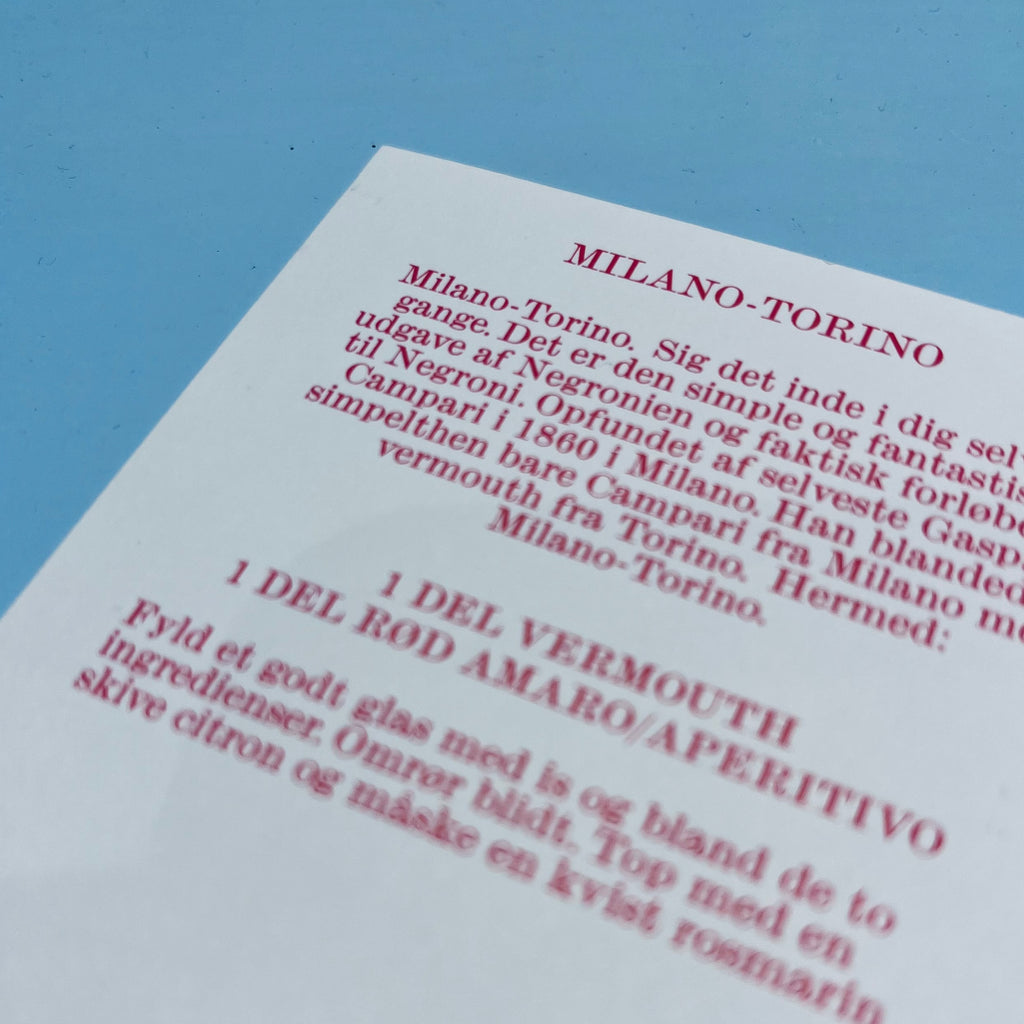 MILANO-TORINO
Milano-Torino. Sig det inde i dig selv
gange. Det er den simple og fantastis
udgave af Negronien og faktisk forløbe
til Negroni. Opfundet af selveste Gasp
Campari i 1860 i Milano. Han blanded
simpelthen bare Campari fra Milano me
vermouth fra Torino. Hermed:
Milano-Torino.
1 DEL VERMOUTH
1 DEL RØD AMARO/APERITIVO
Fyld et godt glas med is og bland de to
ingredienser. Omrør blidt. Top med en
skive citron og måske en kvist rosmarin